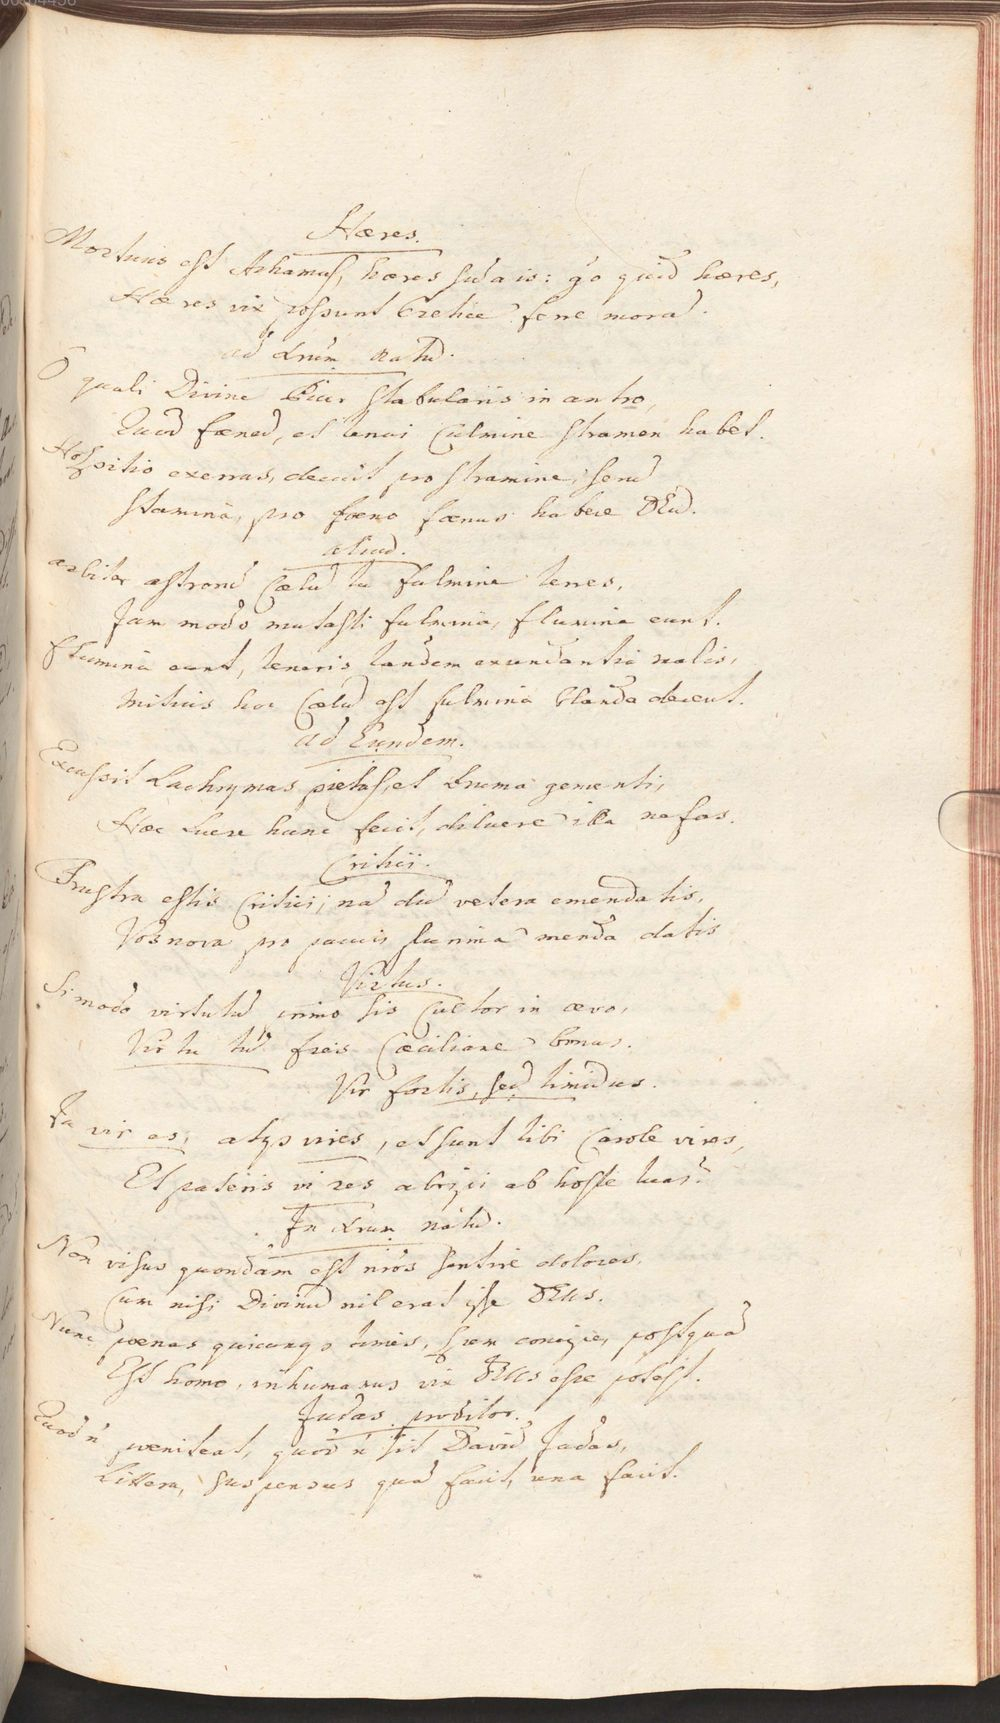 Hæres.
Mortuus est Athamas, hæres sūd a is: g̃o quid hæres,
Hæ res vix possunt Cretice ferre morā.
ad Xrūm natū.
O quali Divine Puer stabularis in antro,
Quod fæneū, et tenui Culmine stramen habet.
Hospitio exeras, decuit pro stramine, serū
Stamina, pro fæno fænus habere DEū.
aliud.
arbiter astrorū Cælū tu fulmine terres,
Jam modo mutasti fulmina, flumina eunt.
flumina eunt, teneris tandem exundantia malis,
mitius hoc Cælū est fulmina blanda decent.
ad Eundem.
Excussit Lachrymas pietas, et bruma gementi,
Hæc Luere hunc fecit, diluere illa nefas.
Critici.
Frustra estis Critici; nā dū vetera emendatis,
Vos nova pro paucis plurima menda datis
Virtus.
Si modo virtutū primo sis Cultor in ævo,
Vir tu tū fies Cæciliane bonus.
Vir fortis, sed timidus.
Tu vir es, atqɜ vires, et sunt tibi Carole vires,
Et pateris vi res abripi ab hoste tuas?
In Xrum natū.
Non visus quondam est nr̃os sentire dolores,
Cum nisi Divinū nil erat isse DEus.
Nunc pœnas quicunqɜ times, spem concipe, postquā
Est homo, inhumanus vix DEus esse potest.
Judas proditor.
Quod ñ pœniteat, quod ñ sit David Judas,
Littera, suspensus quā facit, una facit.